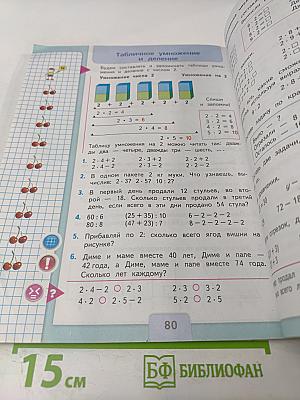 Табличное умножение
и деление
Будем составлять и запоминать таблицы умно-
жения и деления с числом 2.
Умножение числа 2
Умножение на 2
2 + 2 + 2 + 2 + 2
2 · 2 = 4
2 · 3 = 6
2 · 4 = 8
2 · 5 = 10
Слушай
и запомни!
2 · 2 = 4
Таблицу умножения на 2 можно читать так: дваж-
ды два — четыре, дважды три — шесть, ... .
1. 2 · 4 + 2 2 · 3 + 2 2 · 2 + 2
2 · 4 − 2 2 · 3 − 2 2 · 2 − 2
2. В одном пакете 2 кг муки. Что узнаешь, вы-
числив: 2 · 3? 2 · 5? 10 : 2?
3. В первый день продали 12 стульев, во вто-
рой — 18. Сколько стульев продали в третий
день, если всего в эти дни продали 54 стула?
4. 60 : 6 (25 + 35) : 10 8 − 2 − 2 − 2
80 : 8 (47 + 23) : 7 8 − 2 − 2 − 2 − 2
5. Прибавляй по 2: сколько всего ягод вишни на
рисунке?
6. Диме и маме вместе 40 лет, Диме и папе —
42 года, а Диме, маме и папе вместе 74 года.
Сколько лет каждому?
2 · 4 − 2 2 · 3 2 · 3 3 · 2
4 · 2 2 · 5 − 2 5 · 2 2 · 5
80
15 см
БФ БИБЛИОФАН